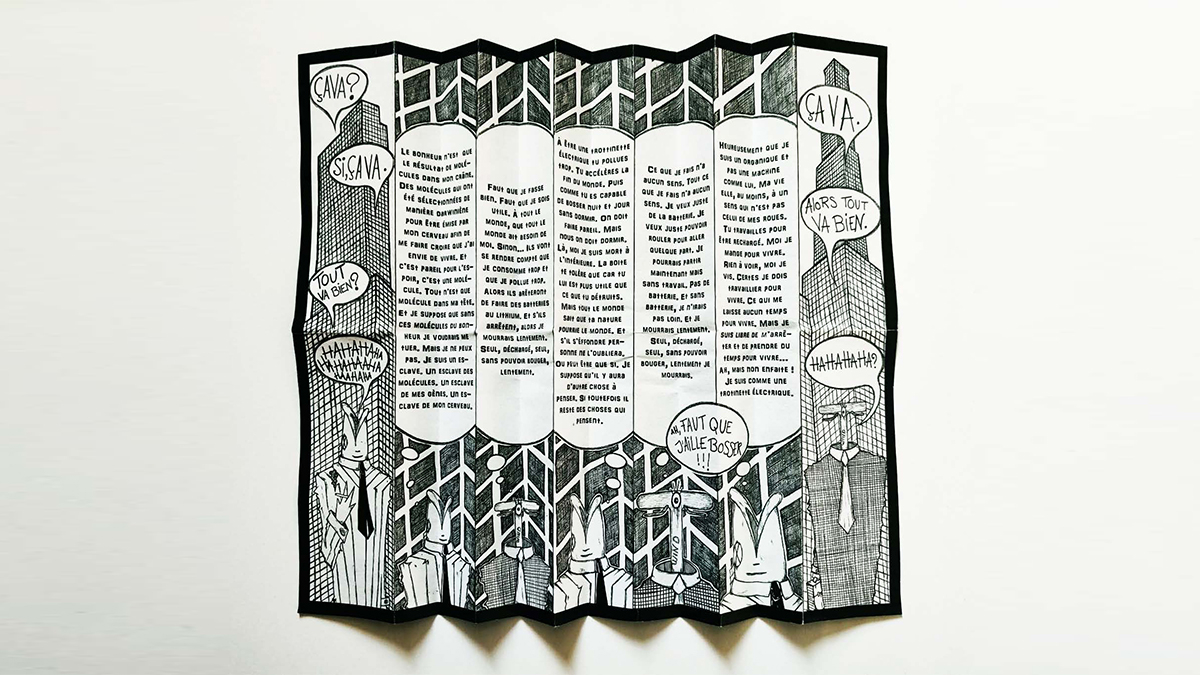 ÇAVA?
SI, ÇAVA.
TOUT
VA BIEN?
HAHAHAHA
HAHAHAHA
HAHAHA
LE BONHEUR N'EST QUE
LE RÉSULTAT DE MOLÉ-
CULES DANS MON CRÂNE.
DES MOLÉCULES QUI ONT
ÉTÉ SÉLECTIONNÉES DE
MANIÈRE DARWINIÈNE
POUR ÊTRE ÉMISE PAR
MON CERVEAU AFIN DE
ME FAIRE CROIRE QUE J'AI
ENVIE DE VIVRE. ET
C'EST PAREIL POUR L'ES-
POIR, C'EST UNE MOLÉ-
CULE. TOUT N'EST QUE
MOLÉCULE DANS MA TÊTE.
ET JE SUPPOSE QUE SANS
CES MOLÉCULES DU BON-
HEUR JE VOUDRAIS ME
TUER. MAIS JE NE PEUX
PAS. JE SUIS UN ES-
CLAVE. UN ESCLAVE DES
MOLÉCULES. UN ESCLAVE
DE MES GÈNES. UN ES-
CLAVE DE MON CERVEAU.
FAUT QUE JE FASSE
BIEN. FAUT QUE JE SOIS
UTILE. À TOUT LE
MONDE, QUE TOUT LE
MONDE AIT BESOIN DE
MOI. SINON... ILS VONT
SE RENDRE COMPTE QUE
JE CONSOMME TROP ET
QUE JE POLLUE TROP.
ALORS ILS ARÊTERONT
DE FAIRE DES BATTERIES
AU LITHIUM. ET S'ILS
ARRÊTENT, ALORS JE
MOURRAIS LENTEMENT.
SEUL, DÉCHARGÉ, SEUL,
SANS POUVOIR BOUGER,
LENTEMENT.
À ÊTRE UNE TROTTINETTE
ÉLECTRIQUE TU POLLUES
TROP. TU ACCÉLÈRES LA
FIN DU MONDE. PUIS
COMME TU ES CAPABLE
DE BOSSER NUIT ET JOUR
SANS DORMIR. ON DOIT
FAIRE PAREIL. MAIS
NOUS ON DOIT DORMIR.
LÀ, MOI JE SUIS MORT À
L'INTÉRIEURE. LA BOITE
TE TOLÈRE QUE CAR TU
LUI EST PLUS UTILE QUE
CE QUE TU DÉTRUITS.
MAIS TOUT LE MONDE
SAIT QUE TA NATURE
POURRIE LE MONDE. ET
S'IL S'EFFONDRE PER-
SONNE NE L'OUBLIERA.
OU PEUT ÊTRE QUE SI. JE
SUPPOSE QU'IL Y AURA
D'AUTRE CHOSE À
PENSER. SI TOUTEFOIS IL
RESTE DES CHOSES QUI
PENSENT.
CE QUE JE FAIS N'A
AUCUN SENS. TOUT CE
QUE JE FAIS N'A AUCUN
SENS. JE VEUX JUSTE
DE LA BATTERIE. JE
VEUX JUSTE POUVOIR
ROULER POUR ALLER
QUELQUE PART. JE
POURRAIS PARTIR
MAINTENANT MAIS
SANS TRAVAIL. PAS DE
BATTERIE. ET SANS
BATTERIE, JE N'IRAIS
PAS LOIN. ET JE
MOURRAIS LENTEMENT.
SEUL, DÉCHARGÉ,
SEUL, SANS POUVOIR
BOUGER, LENTEMENT JE
MOURRAIS.
HEUREUSEMENT QUE JE
SUIS UN ORGANIQUE ET
PAS UNE MACHINE
COMME LUI. MA VIE
ELLE, AU MOINS, À UN
SENS QUI N'EST PAS
CELUI DE MES ROUES.
TU TRAVAILLES POUR
ÊTRE RECHARGÉ. MOI JE
MANGE POUR VIVRE.
RIEN À VOIR, MOI JE
VIS. CERTES JE DOIS
TRAVAILLIER POUR
VIVRE. CE QUI ME
LAISSE AUCUN TEMPS
POUR VIVRE. MAIS JE
SUIS LIBRE DE M'ARRÊ-
TER ET DE PRENDRE DU
TEMPS POUR VIVRE...
AH, MAIS NON ENFAITE !
JE SUIS COMME UNE
TROTINETTE ÉLECTRIQUE.
AH, FAUT QUE
J'AILLE BOSSER
!!!
WIND
ÇAVA.
ALORS TOUT
VA BIEN.
HAHAHAHA?